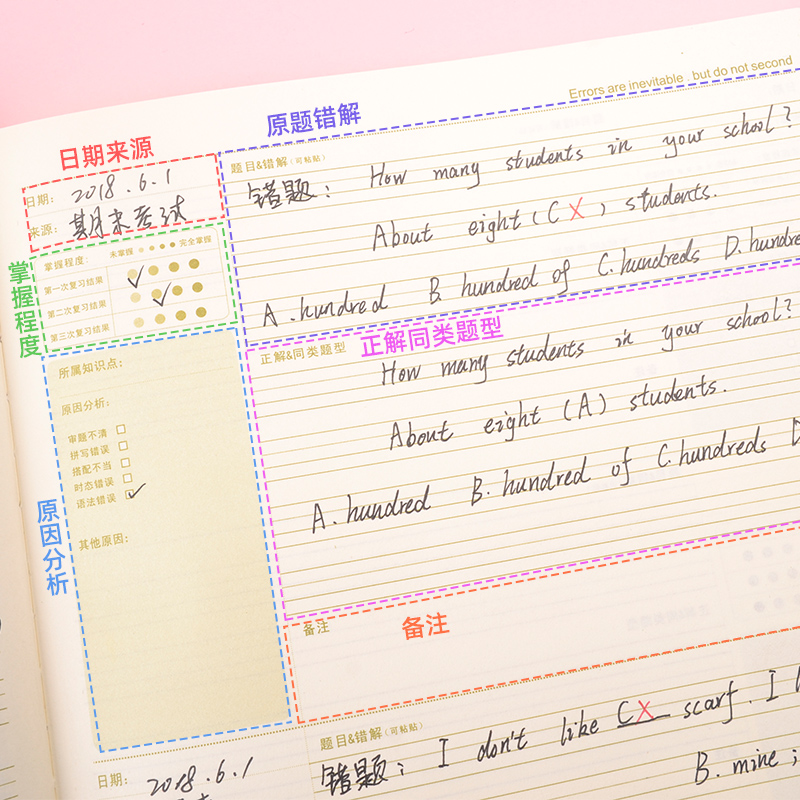 Errors are inevitable . but do not second
原题错解
日期来源
题目&错解（可粘贴）
错题： How many students in your school?
日期： 2018.6.1
About eight (C X) students.
来源： 期末考试
A.hundred B. hundred of C.hundreds D.hundre
掌握程度
掌握程度： 未掌握 完全掌握
第一次复习结果
第二次复习结果
第三次复习结果
正解&同类题型
正解同类题型
How many students in your school?
About eight (A) students.
A. hundred B. hundred of C.hundreds D
所属知识点：
原因分析：
审题不清
拼写错误
搭配不当
时态错误
语法错误
其他原因：
原因分析
备注
备注
题目&错解（可粘贴）
错题： I don't like CX scarf. I
日期： 2018.6.1
B. mine ;